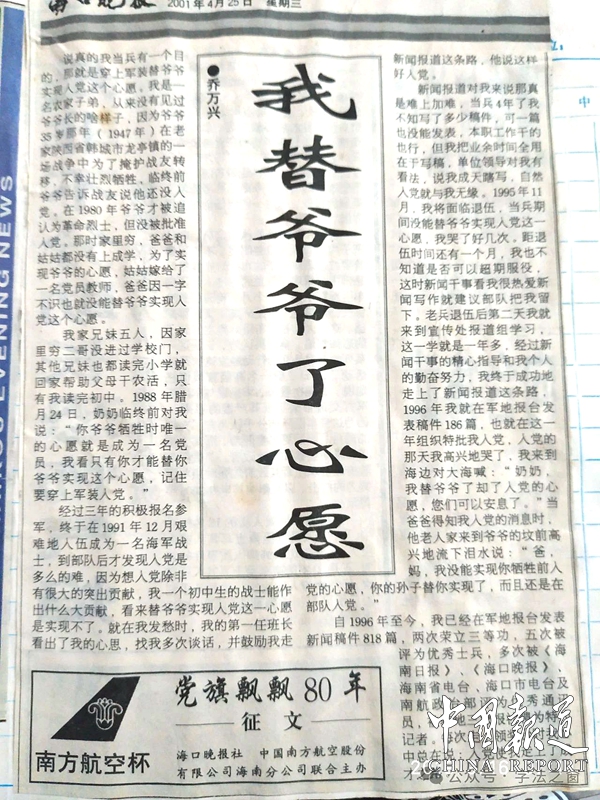 海口晚报
2001年4月25日 星期三
我替爷爷了心愿
●乔万兴
说真的我当兵有一个目
的，那就是穿上军装替爷爷
实现入党这个心愿。我是一
名农家子弟，从来没有见过
爷爷长的啥样子，因为爷爷
35岁那年（1947年）在老
家陕西省韩城市龙亭镇的一
场战争中为了掩护战友转
移，不幸壮烈牺牲，临终前
爷爷告诉战友说他还没入
党。在1980年爷爷才被追
认为革命烈士，但没被批准
入党。那时家里穷，爸爸和
姑姑都没有上成学，为了实
现爷爷的心愿，姑姑嫁给了
一名党员教师，爸爸因一字
不识也就没能替爷爷实现入
党这个心愿。
我家兄妹五人，因家
里穷二哥没进过学校门，
其他兄妹也都读完小学就
回家帮助父母干农活，只
有我读完初中。1988年腊
月24日，奶奶临终前对我
说：“你爷爷牺牲时唯一
的心愿就是成为一名党
员，我看只有你才能替你
爷爷实现这个心愿，记住
要穿上军装入党。”
经过三年的积极报名参
军，终于在1991年12月艰
难地入伍成为一名海军战
士，到部队后才发现入党是
多么的难，因为想入党除非
有很大的突出贡献，我一个初中生的战士能作
出什么大贡献，看来替爷爷实现入党这一心愿
是实现不了。就在我发愁时，我的第一任班长
看出了我的心思，找我多次谈话，并鼓励我走
新闻报道这条路，他说这样
好入党。
新闻报道对我来说那真
是难上加难，当兵4年了我
不知写了多少稿件，可一篇
也没能发表，本职工作干的
也行，但我把业余时间全用
在于写稿，单位领导对我有
看法，说我成天瞎写，自然
入党就与我无缘。1995年11
月，我将面临退伍，当兵期
间没能替爷爷实现入党这一
心愿，我哭了好几次。距退
伍时间还有一个月，我也不
知道是否可以超期服役，
这时新闻干事看我很热爱新
闻写作就建议部队把我留
下。老兵退伍后第二天我就
来到宣传处报道组学习，
这一学就是一年多，经过新
闻干事的精心指导和我个人
的勤奋努力，我终于成功地
走上了新闻报道这条路，
1996年我就在军地报台发
表稿件186篇，也就在这一
年组织特批我入党，入党的
那天我高兴地哭了，我来到
海边对大海喊：“奶奶，
我替爷爷了却了入党的心
愿，您们可以安息了。”当
爸爸得知我入党的消息时，
他老人家来到爷爷的坟前高
兴地流下泪水说：“爸，
妈，我没能实现你牺牲前入
党的心愿，你的孙子替你实现了，而且还是在
部队入党。”
自1996年至今，我已经在军地报台发表
新闻稿件818篇，两次荣立三等功，五次被
评为优秀士兵，多次被《海
南日报》、《海口晚报》、
海南省电台、海口市电台及
南航政
员，
记者。每次
中总在说：
才
党旗飘飘80年
征文
南方航空杯
海口晚报社 中国南方航空股份
有限公司海南分公司联合主办
EVENING NEWS
中
中国报道
CHINA REPORT
公众号·字法之窗